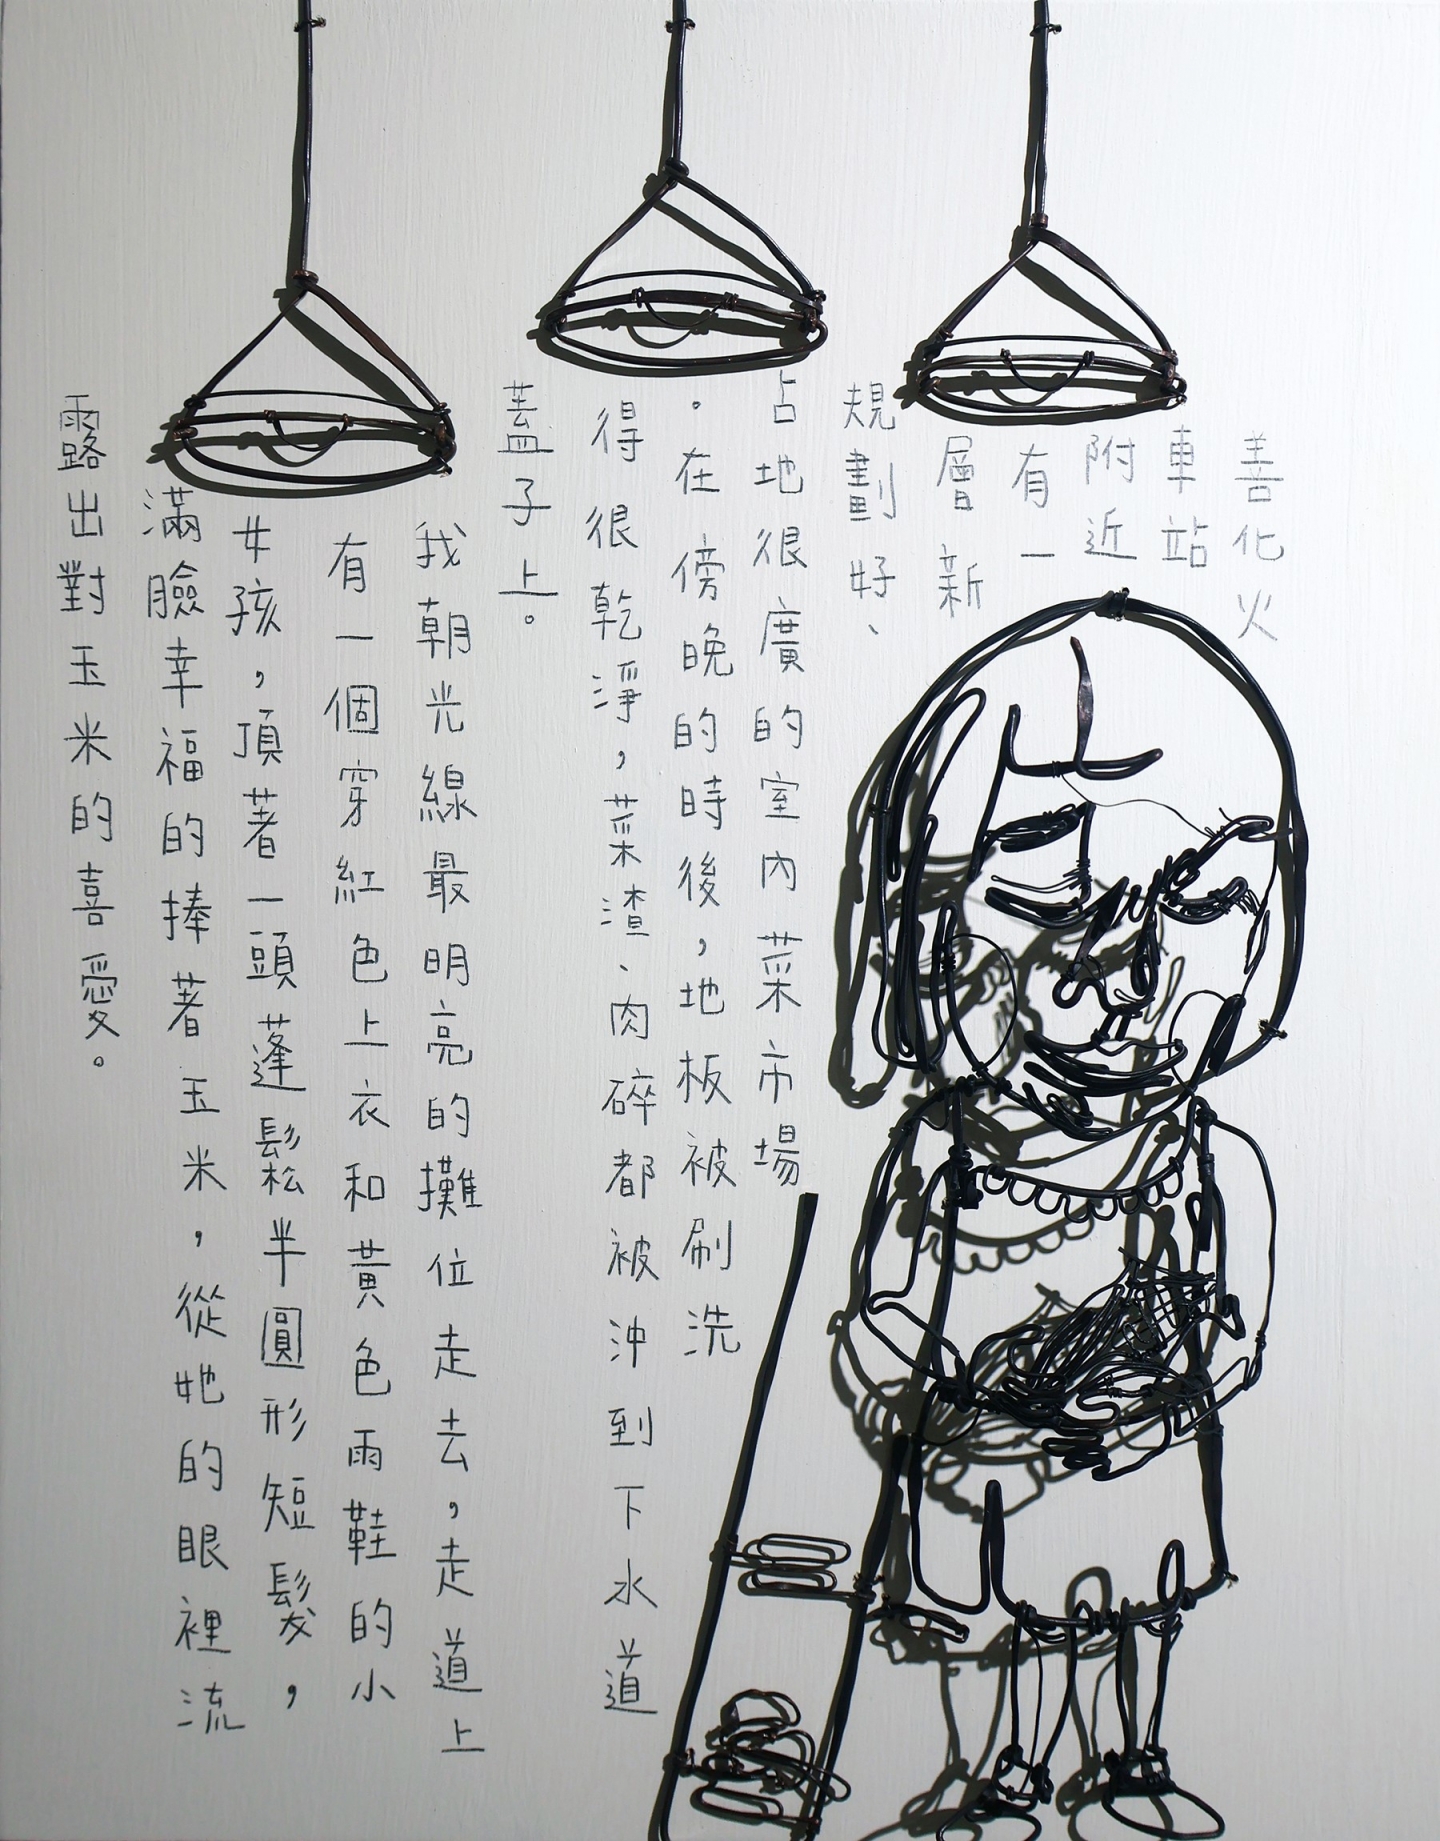 善化火
車站
附近
有一
層新
規劃好、
占地很廣的室內菜市場
。在傍晚的時後，地板被刷洗
得很乾淨，菜渣、肉碎都被沖到下水道
蓋子上。
我朝光線最明亮的攤位走去，走道上
有一個穿紅色上衣和黃色雨鞋的小
女孩，頂著一頭蓬鬆半圓形短髮，
滿臉幸福的捧著玉米，從她的眼裡流
露出對玉米的喜愛。